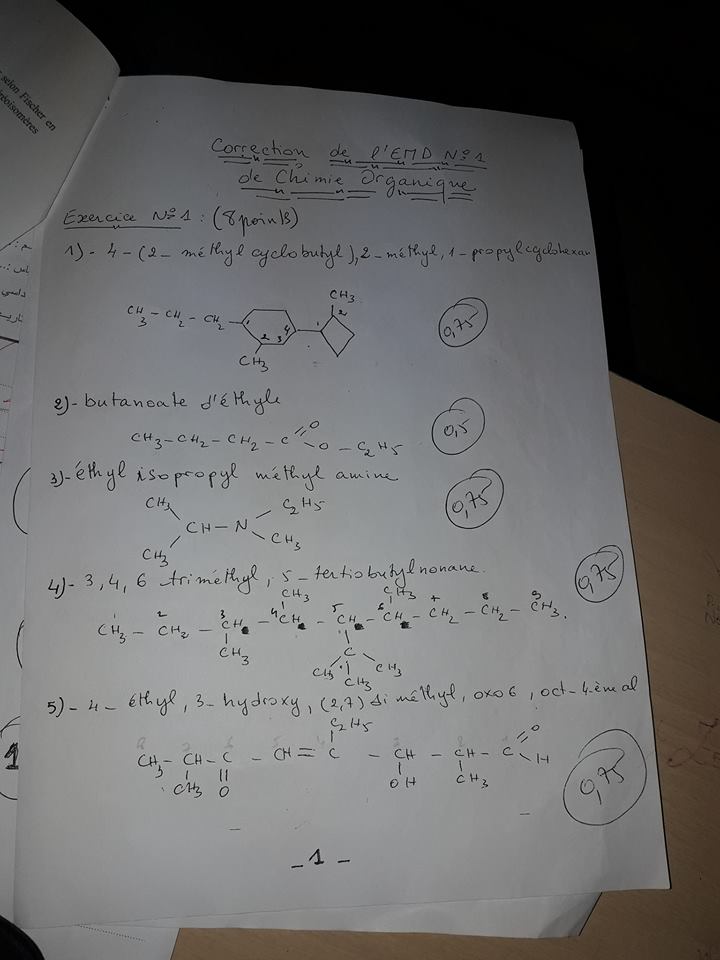 selon Fischer en
stéréoisomères
Correction de l'EMD N°1
de Chimie Organique
Exercice N°1 : (8 points)
1)- 4-(2-méthyl cyclobutyl), 2-méthyl, 1-propylcyclohexan
CH3
CH3 - CH2 - CH2
1 2 3 4 1 2
CH3
0,75
2)- butanoate d'éthyle
CH3-CH2-CH2-C O O-C2H5
0,5
3)- éthyl isopropyl méthyl amine
CH3 C2H5
CH-N
CH3 CH3
0,75
4)- 3,4,6 triméthyl, 5-tertiobutylnonane.
CH3 CH3
1 2 3 4 5 6 7 8 9
CH3 - CH2 - CH - CH - CH - CH - CH2 - CH2 - CH3.
CH3 C
CH3 CH3 CH3
0,75
5)- 4-éthyl, 3-hydroxy, (2,7) diméthyl, oxo6, oct-4-èn al
C2H5
CH3 - CH - C - CH = C - CH - CH - C O H
CH3 O OH CH3
0,75
- 1 -
1